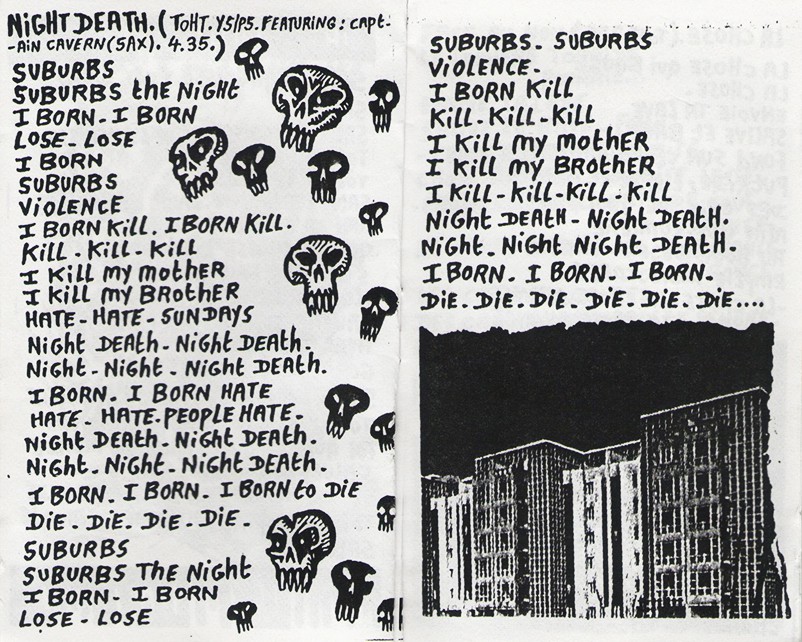 NiGHT DEATH. (TOHT. Y5/P5. FEATURING: CAPT-
-AiN CAVERN (SAX). 4.35.)
SUBURBS
SUBURBS the NiGHt
I BORN. I BORN
LOSE - LOSE
I BORN
SUBURBS
ViOLENCE
I BORN Kill. I BORN Kill.
Kill. Kill. Kill
I Kill my mother
I Kill my BRother
HATE - HATE - SUNDAYS
Night DEATH - Night DEATH.
Night - Night - Night DEATH.
I BORN. I BORN HATE
HATE. HATE. PEOPLE HATE.
Night DEATH - Night DEATH.
Night - Night - Night DEATH.
I BORN. I BORN. I BORN to DiE
DiE. DiE. DiE. DiE.
SUBURBS
SUBURBS THE Night
I BORN. I BORN
LOSE - LOSE
SUBURBS. SUBURBS
ViOLENCE.
I BORN Kill
Kill. Kill - Kill
I Kill my mother
I Kill my BRother
I Kill - Kill - Kill - Kill
Night DEATH - Night DEATH.
Night. Night Night DEATH.
I BORN. I BORN. I BORN.
DiE. DiE. DiE. DiE. DiE. DiE....